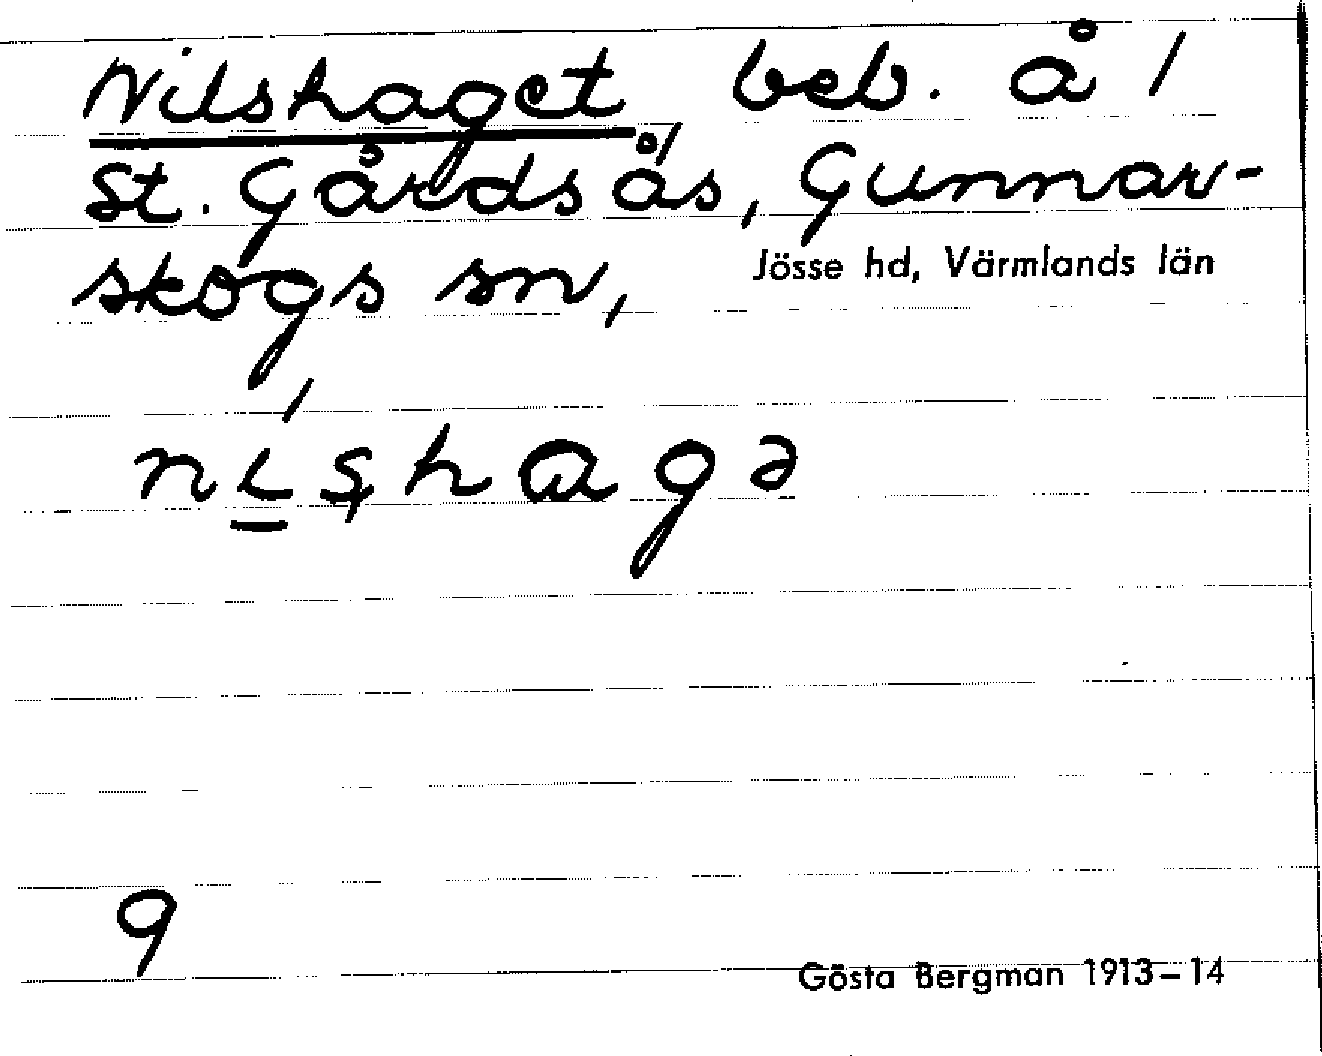 Nilshaget beb. å /
St. Gårdsås, Gunnar-
skogs sn, Jösse hd, Värmlands län
nı̲ʂhagə
9
Gösta Bergman 1913-14